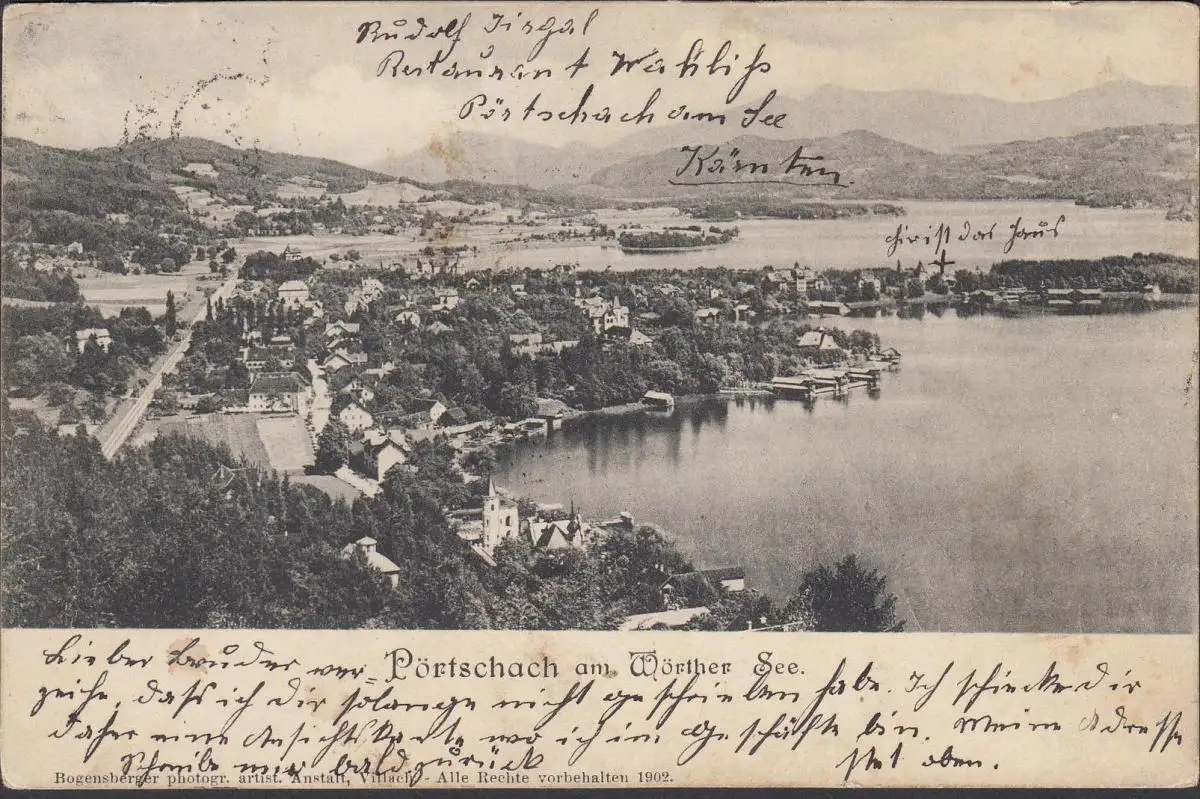 Rudolf Jirgal
Restaurant Wahliß
Pörtschach am See
Kärnten
hir ist das Haus
Pörtschach am Wörther See.
Lieber Bruder ver=
zeihe, daß ich dir solange nicht geschrieben habe. Ich schicke dir
daher eine Ansichtskarte wo ich im Geschäfte bin. Meine Adresse
Schreibe mir bald zurück
stet oben.
Bogensberger photogr. artist. Anstalt, Villach. - Alle Rechte vorbehalten 1902.